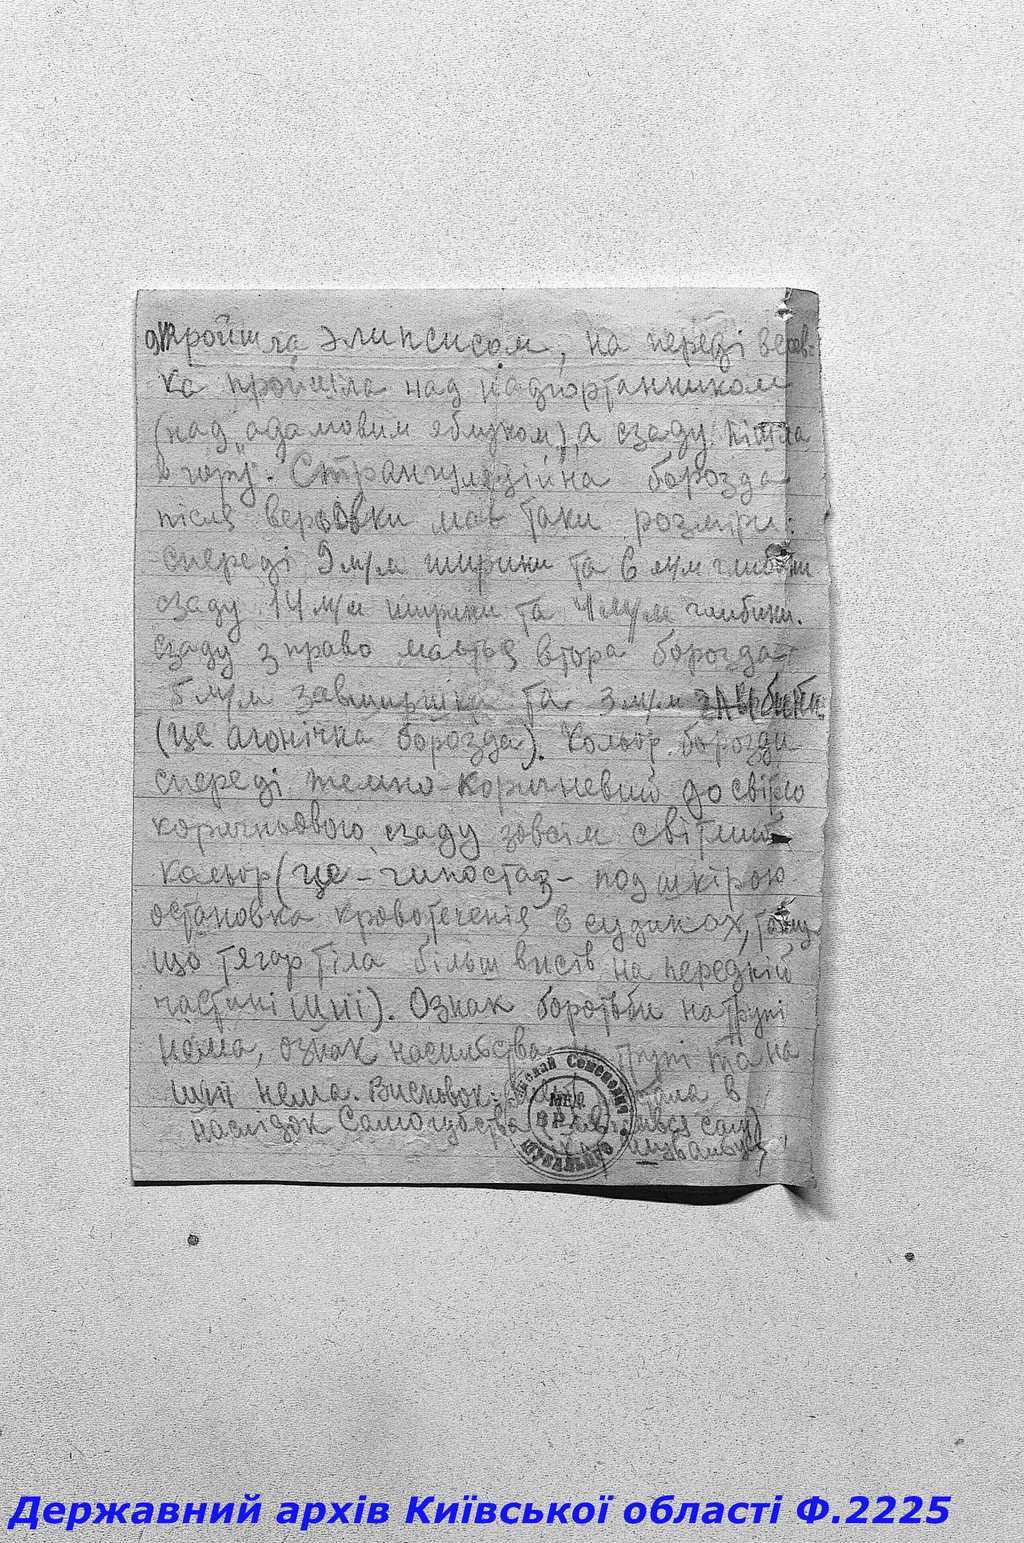 пройшла элипсисом, на переді верев-
ка пройшла над надгортанником
(над „адамовим яблуком), а сзаду пішла
в гору". Странгуляційна борозда
після верьовки має таки розміри:
спереді 9 м/м ширини та 6 м/м глибини
сзаду 14 м/м ширини та 4 м/м глибини.
сзаду з право мається втора борозда
5 м/м завширшки та 3 м/м
(це агонічка борозда). Кольор борозди
спереді темно-коричневий до світло
коричньового, сзаду зовсім світлий
кольор (це - гипостаз - под шкірою
остановка кровотеченія в судинах, тому
що тягар тіла більш висів на передній
частині шиї). Ознак боротьби на трупі
нема, ознак насильства трупі та на
шиї нема. Висновок: в
наслідок самогубства сам)
Семенович
ВРАЧ
Державний архів Київської області Ф.2225